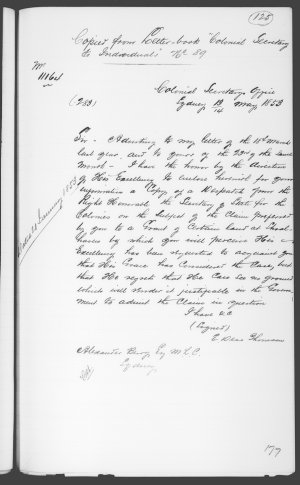 (125)
Copied from Letter-book "Colonial Secretary
to Individuals" No 89
Colonial Secretary's Office
(233) Sydney 13/14 May 1853
Sir - Adverting to my letter of the 11th March
last year, and to yours of the 23rd of the same
Month - I have the honor by the direction
of His Excellency to enclose herewith for your
information a Copy of a Despatch from the
Right Honorable the Secretary of State for the
Colonies on the Subject of the Claim preferred
by you to a Grant of Certain Land at Shoal-
haven by which you will perceive His
Excellency has been requested to acquaint you
that His Grace has Considered the Case, but
that He regrets that He Can see no ground
which will render it justifiable in the Govern-
ment to admit the Claim in question
I have &c
(Signed)
E Deas Thomson
Alexander Berry Esq M.L.C.
Sydney
177